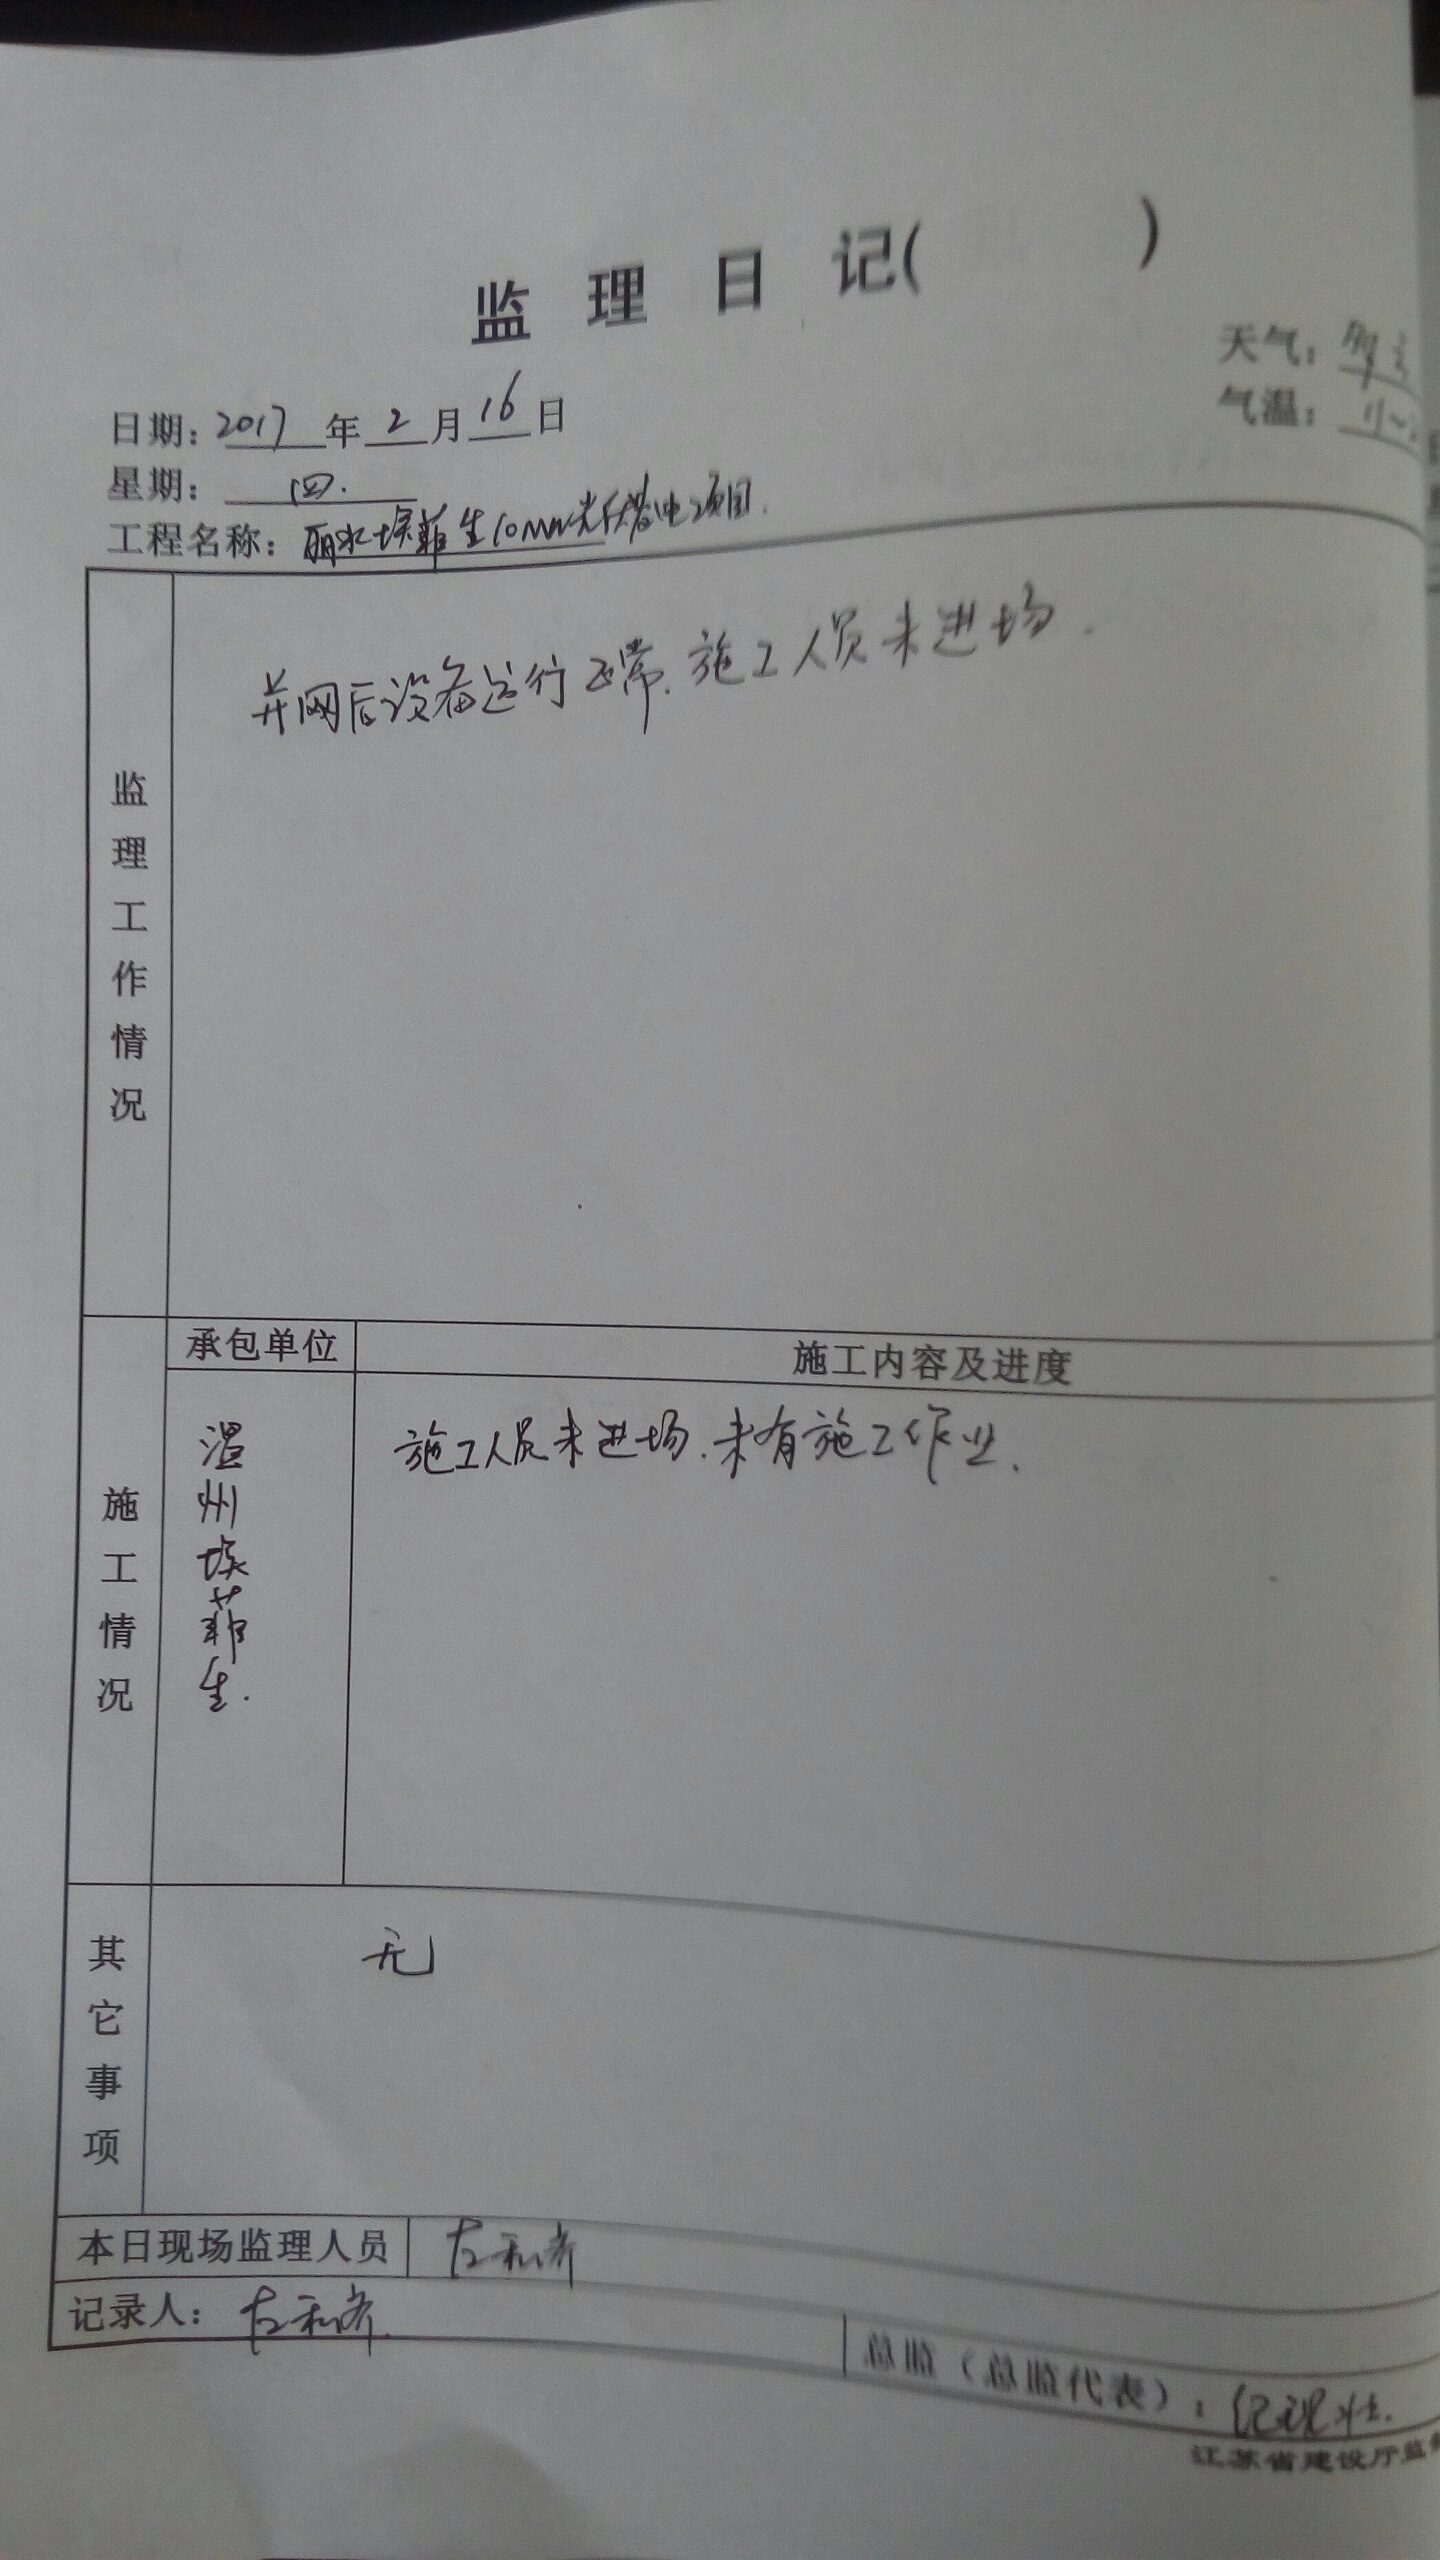 监理日记( )
天气：
日期：2017年2月16日
气温：11~
星期：四.
工程名称：丽水埃菲生10MW光伏发电项目.
监理工作情况
并网后设备运行正常.施工人员未进场.
施工情况
承包单位
施工内容及进度
温州埃菲生.
施工人员未进场.未有施工作业.
其它事项
无
本日现场监理人员
记录人：
总监（总监代表）：
江苏省建设厅监